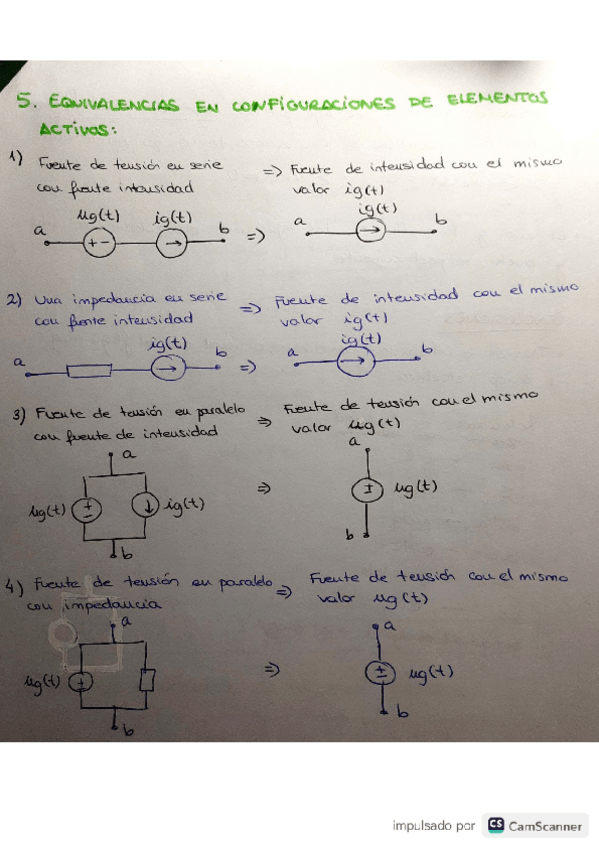 5. EQUIVALENCIAS EN CONFIGURACIONES DE ELEMENTOS
ACTIVOS:
1) Fuente de tensión en serie
con fuente intensidad
=> Fuente de intensidad con el mismo
valor ig(t)
a ug(t) ig(t) b => a ig(t) b
2) Una impedancia en serie
con fuente intensidad
=> Fuente de intensidad con el mismo
valor ig(t)
a ig(t) b => a ig(t) b
3) Fuente de tensión en paralelo
con fuente de intensidad
=> Fuente de tensión con el mismo
valor ug(t)
a
ug(t) + - ig(t)
b
=>
a
± ug(t)
b
4) Fuente de tensión en paralelo
con impedancia
=> Fuente de tensión con el mismo
valor ug(t)
a
ug(t) ±
b
=>
a
± ug(t)
b
impulsado por CS CamScanner